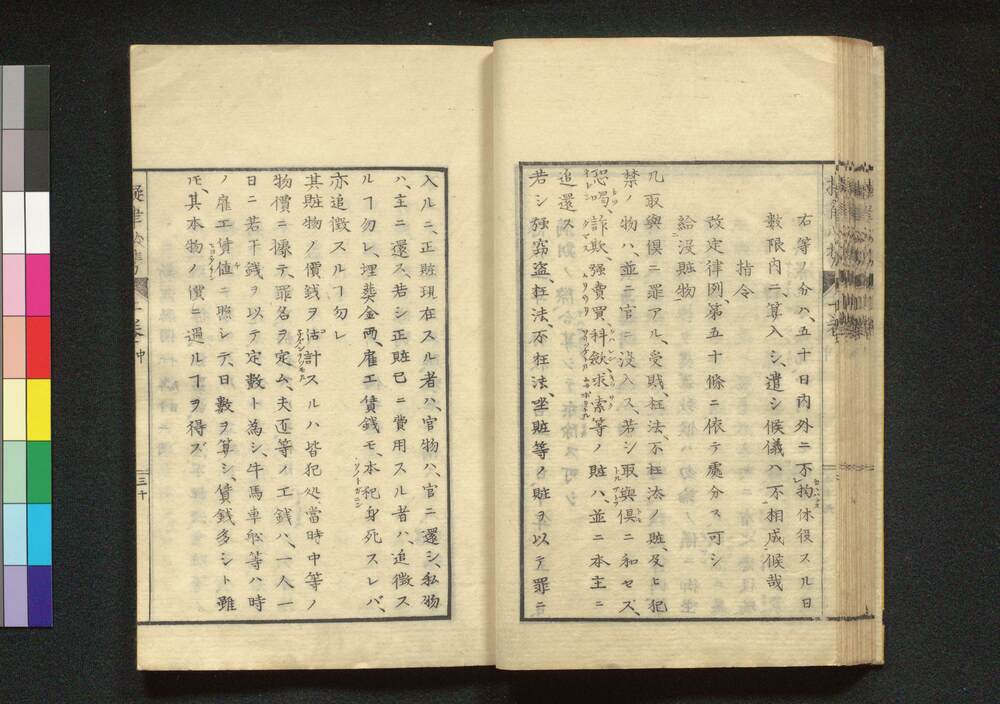 右等ノ分ハ、五十日内外ニ不拘休役スル日
数限内ニ算入シ、遣シ候儀ハ不相成候哉
指令
改定律例第五十條ニ依テ處分ス可シ
給没贓物
凡取與俱ニ罪アル、受贓、枉法、不枉法ノ贓、及ヒ犯
禁ノ物ハ、並ニ官ニ没入ス、若シ取與俱ニ和セズ、
恐喝、詐欺、强賣買科歛求索等ノ贓ハ、並ニ本主ニ
追還ス
若シ强窃盗、枉法、不枉法、坐贓等ノ贓ヲ以テ罪ニ
入ルニ、正贓現在スル者ハ、官物ハ、官ニ還シ、私物
ハ、主ニ還ス、若シ正贓已ニ費用スル者ハ、追徴ス
ルヿ勿レ、埋葬金両、雇工賃銭モ、本犯身死スレバ、
亦追徴スルヿ勿レ
其贓物ノ價銭ヲ估計スルハ皆犯処、當時中等ノ
物價ニ據テ、罪名ヲ定ム、夫匠等ノ工銭ハ、一人一
日ニ若干銭ヲ以テ定數ト為シ、牛馬車舩等ハ時
ノ雇工賃値ニ照シテ、日數ヲ算シ、賃銭多シト雖
モ、其本物ノ價ニ過ルヿヲ得ズ
三十